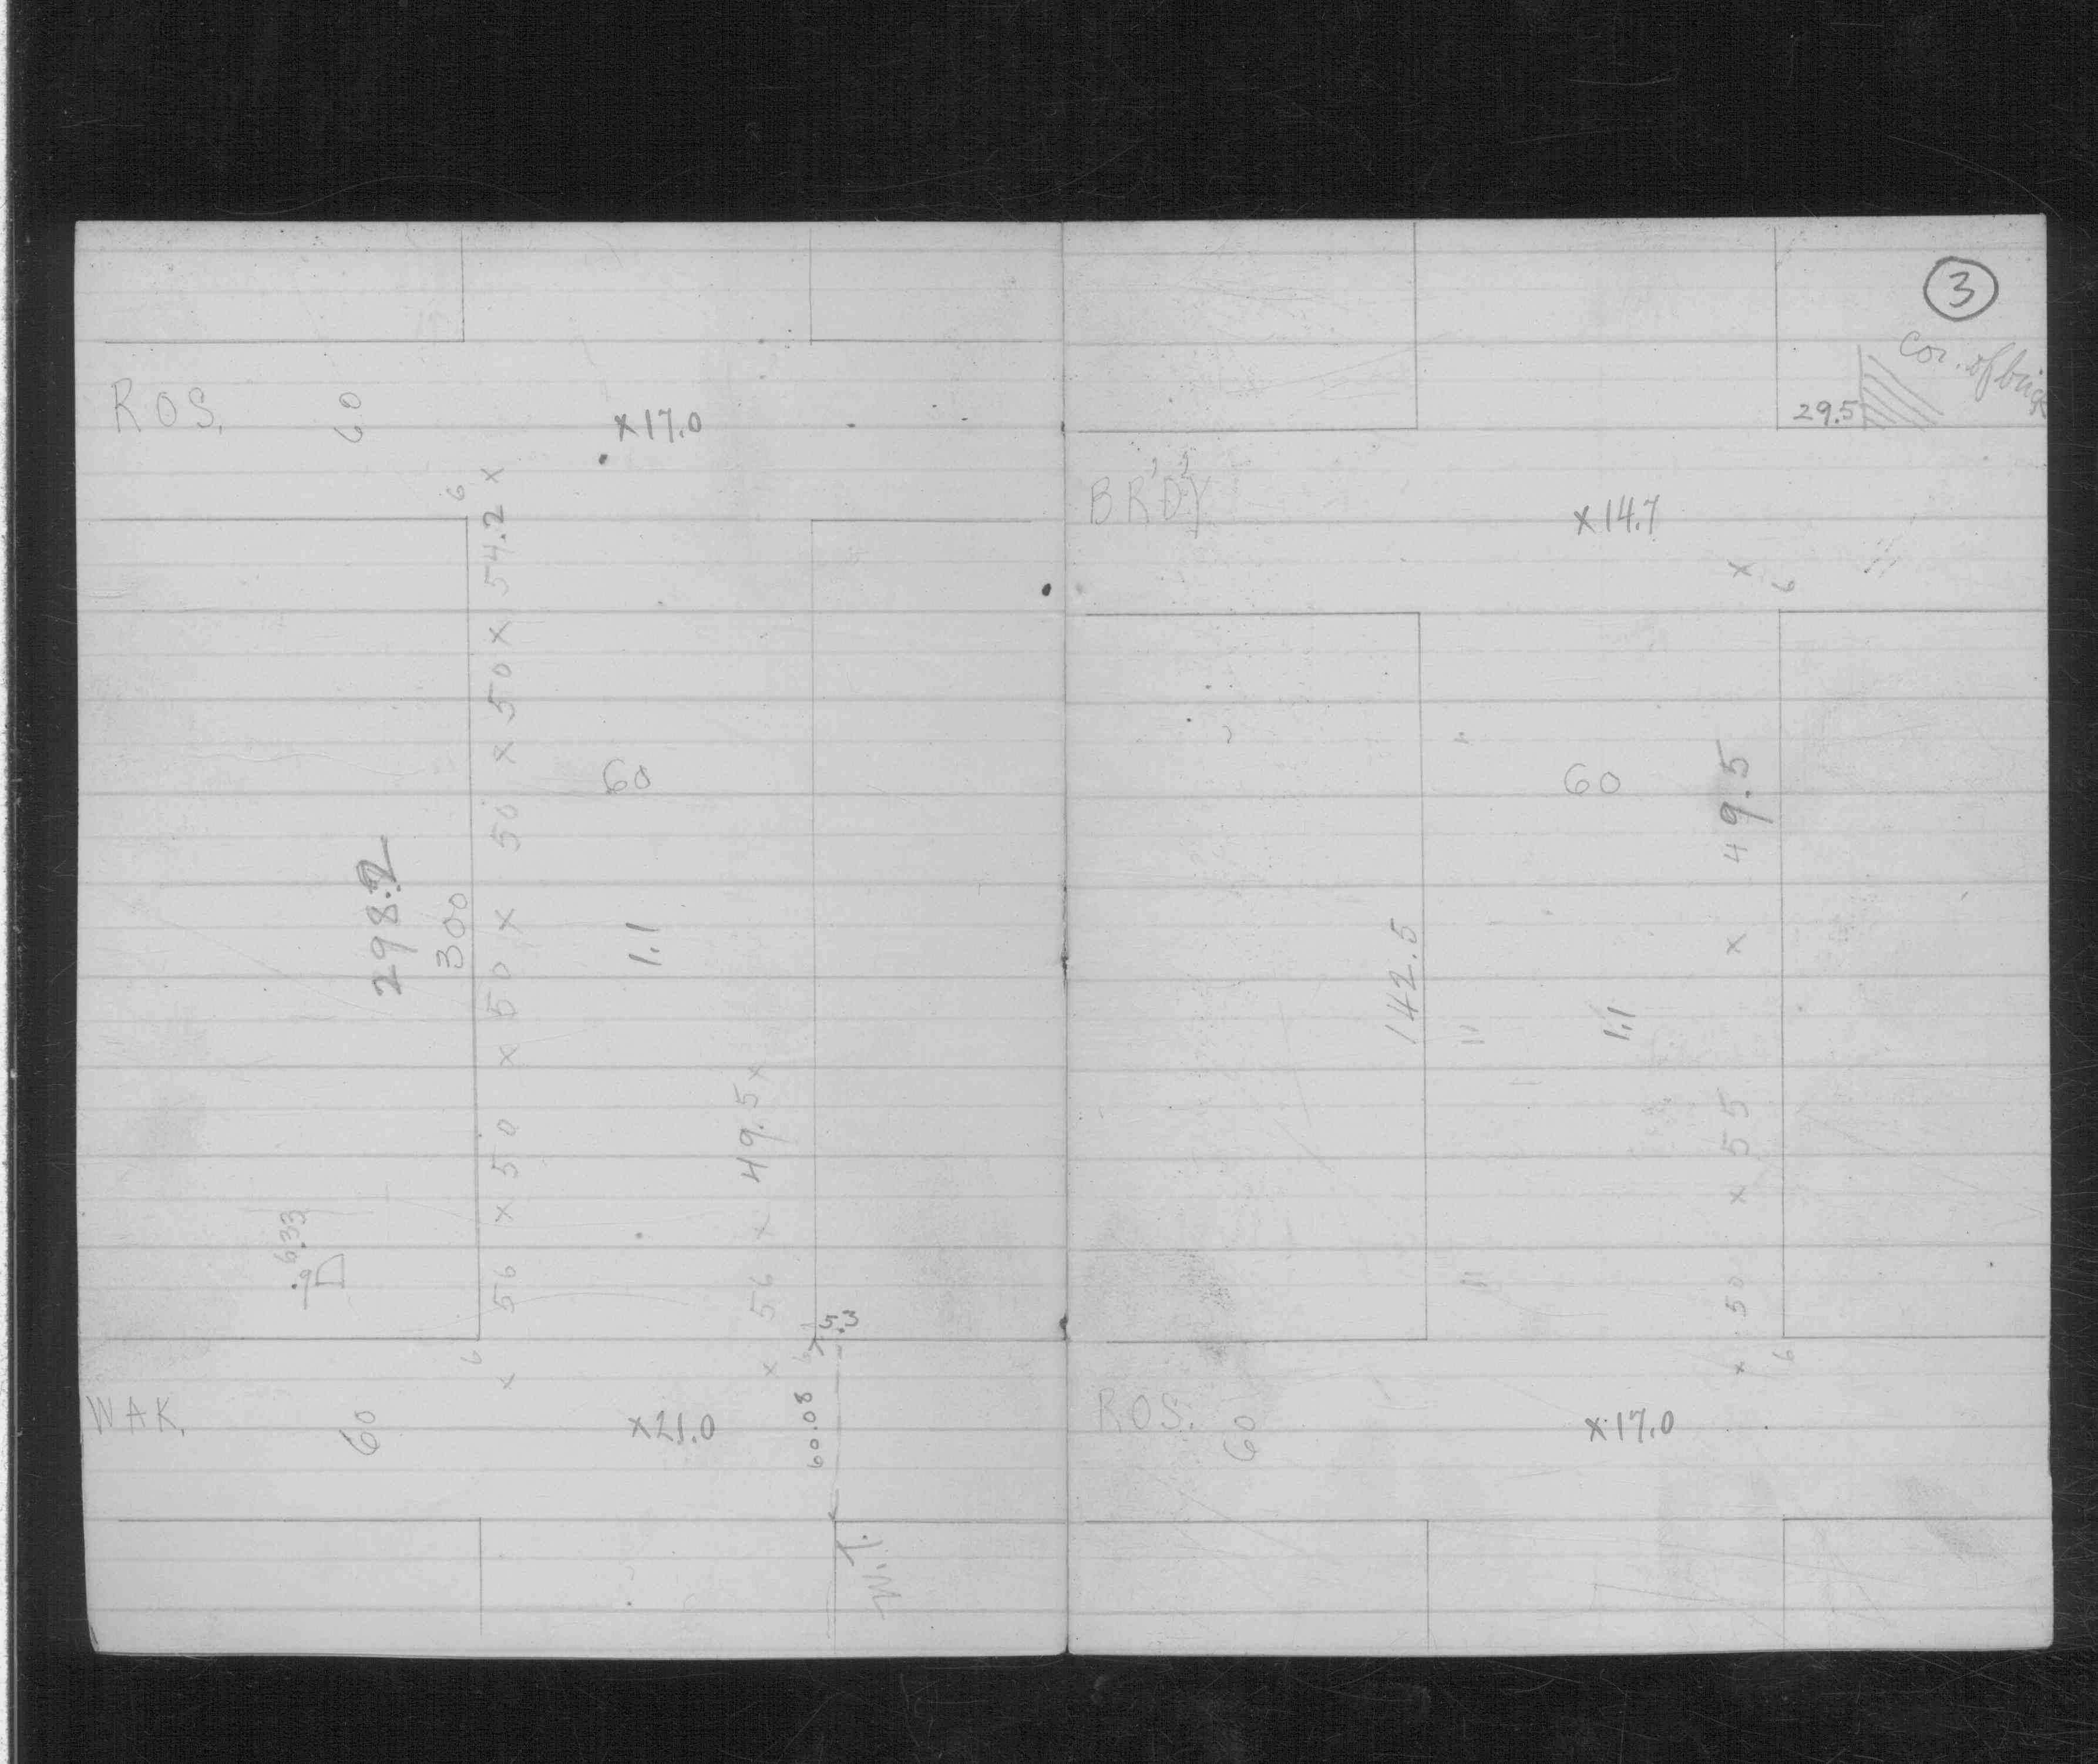 ROS.
60
×17.0
6
56 × 50 × 50 × 50 × 50 × 54.2 ×
60
298.2
300
1.1
56 × 49.5 ×
6.33
5.3
6
×
×
WAK.
60
×21.0
60.08
3
cor. of
29.5
BR'D'Y
×14.7
×
6
60
142.5
1.1
× 50 × 55 × 49.5
"
"
"
6
ROS.
60
×17.0